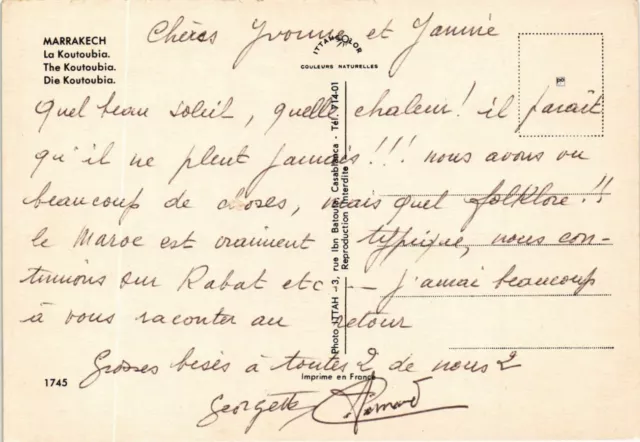 MARRAKECH
La Koutoubia.
The Koutoubia.
Die Koutoubia.
ITTAHCOLOR
COULEURS NATURELLES
Chères Yvonne et Janine
Quel beau soleil, quelle chaleur! il parait
qu'il ne pleut jamais!!! nous avons vu
beaucoup de choses, mais quel folklore!!
le Maroc est vraiment typique, nous con-
tinuons sur Rabat etc -- j'aurai beaucoup
à vous raconter au retour
Grosses bises à toutes 2 de nous 2
Georgette Bernard
Photo ITTAH - 3, rue Ibn Batouta, Casablanca - Tél. 714-01
Reproduction interdite
1745
Imprime en France